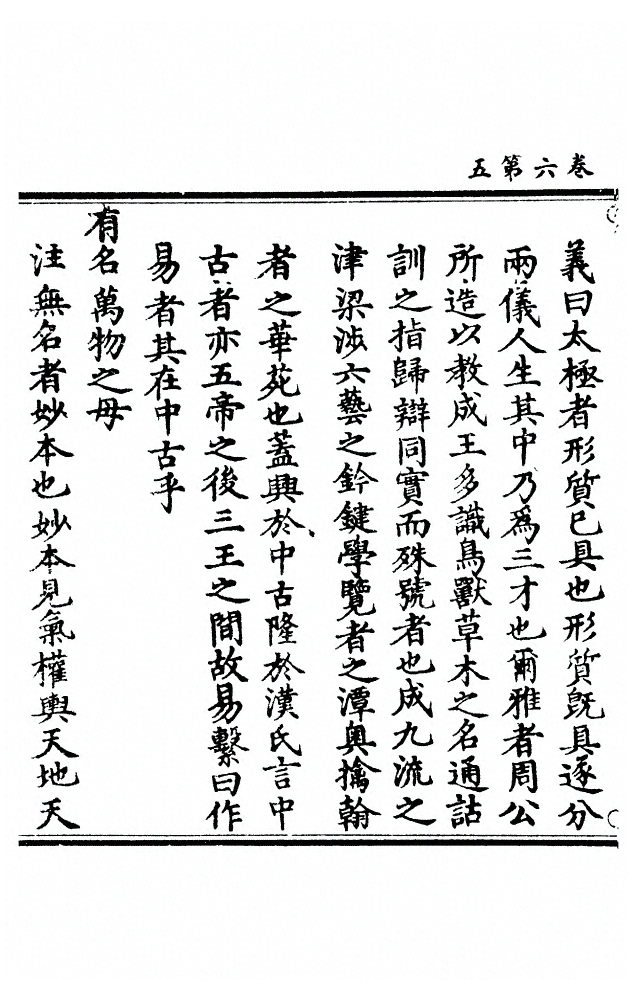 卷六第五
義曰太極者形質已具也形質既具遂分
兩儀人生其中乃爲三才也爾雅者周公
所造以教成王多識鳥獸草木之名通詁
訓之指歸辯同實而殊號者也成九流之
津梁涉六藝之鈐鍵學覽者之潭奥擒翰
者之華苑也蓋興於中古隆於漢氏言中
古者亦五帝之後三王之間故易繫曰作
易者其在中古乎
有名萬物之母
注無名者妙本也妙本見氣權輿天地天